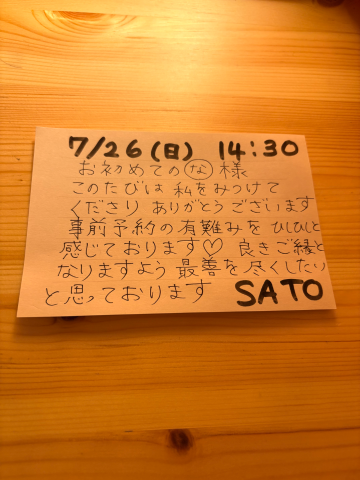 7/26(日) 14:30
お初めての な 様
このたびは 私をみつけて
くださり ありがとうございます
事前予約の有難みを ひしひしと
感じております♡ 良きご縁と
なりますよう 最善を尽くしたい
と思っております SATO